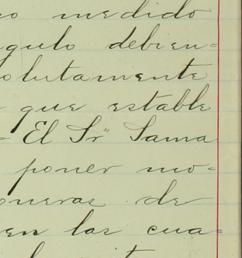 o medido
gulo debien-
olutamente
que estable
- El Sr. Sama
poner mo-
oneras de
en las cua-